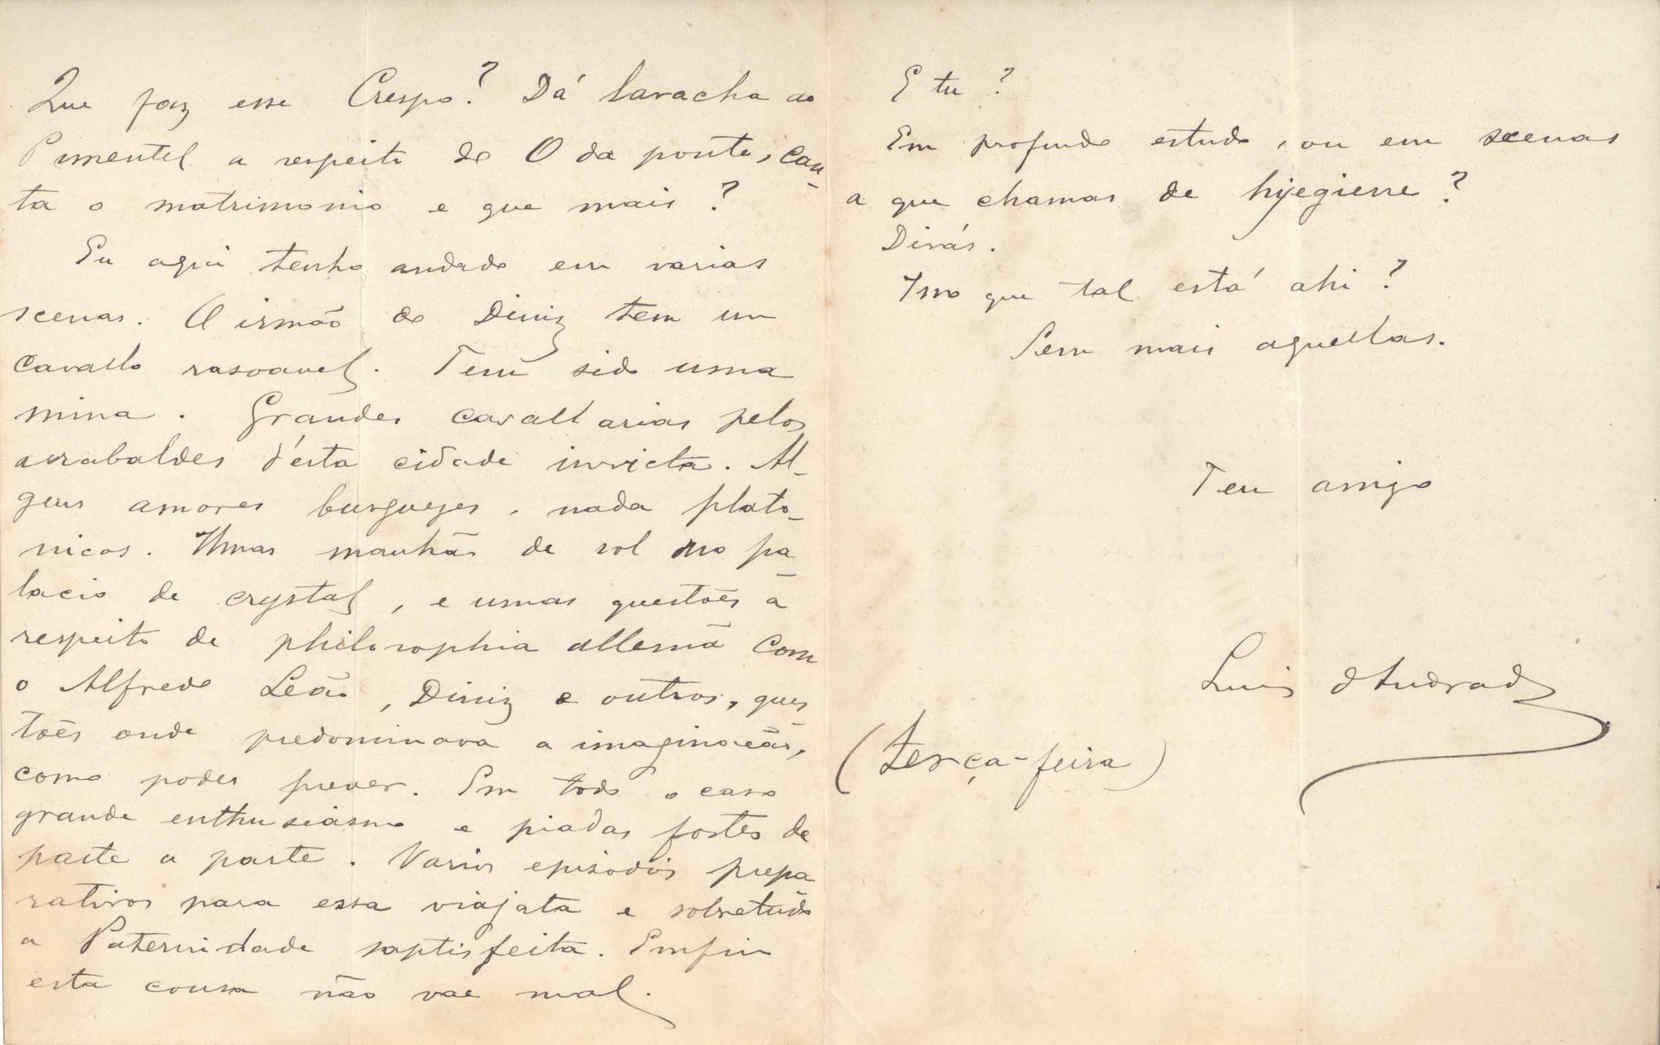 Que faz esse Crespo? Dá laracha ao
Pimentel a respeito do O da ponte, can-
ta o matrimonio e que mais?
Eu aqui tenho andado em varias
scenas. O irmão do Diniz tem um
cavallo rasoavel. Tem sido uma
mina. Grandes cavallarias pelos
arrabaldes d'esta cidade invicta. Al-
guns amores burguezes, nada plato-
nicos. Umas manhãs de sol no pa-
lacio de crystal, e umas questões a
respeito de philosophia allemã com
o Alfredo Leão, Diniz e outros, ques
tões onde predominava a imaginação,
como podes prever. Em todo o caso
grande enthusiasmo e piadas fortes de
parte a parte. Varios episodios prepa
rativos para essa viajata e sobretudo
a Paternidade saptisfeita. Emfim
esta cousa não vae mal.
E tu?
Em profundo estudo, ou em scenas
a que chamas de hijegiene?
Dirás.
Isso que tal está ahi?
Sem mais aquellas.
Teu amigo
Luis d'Andrade
(terça-feira)